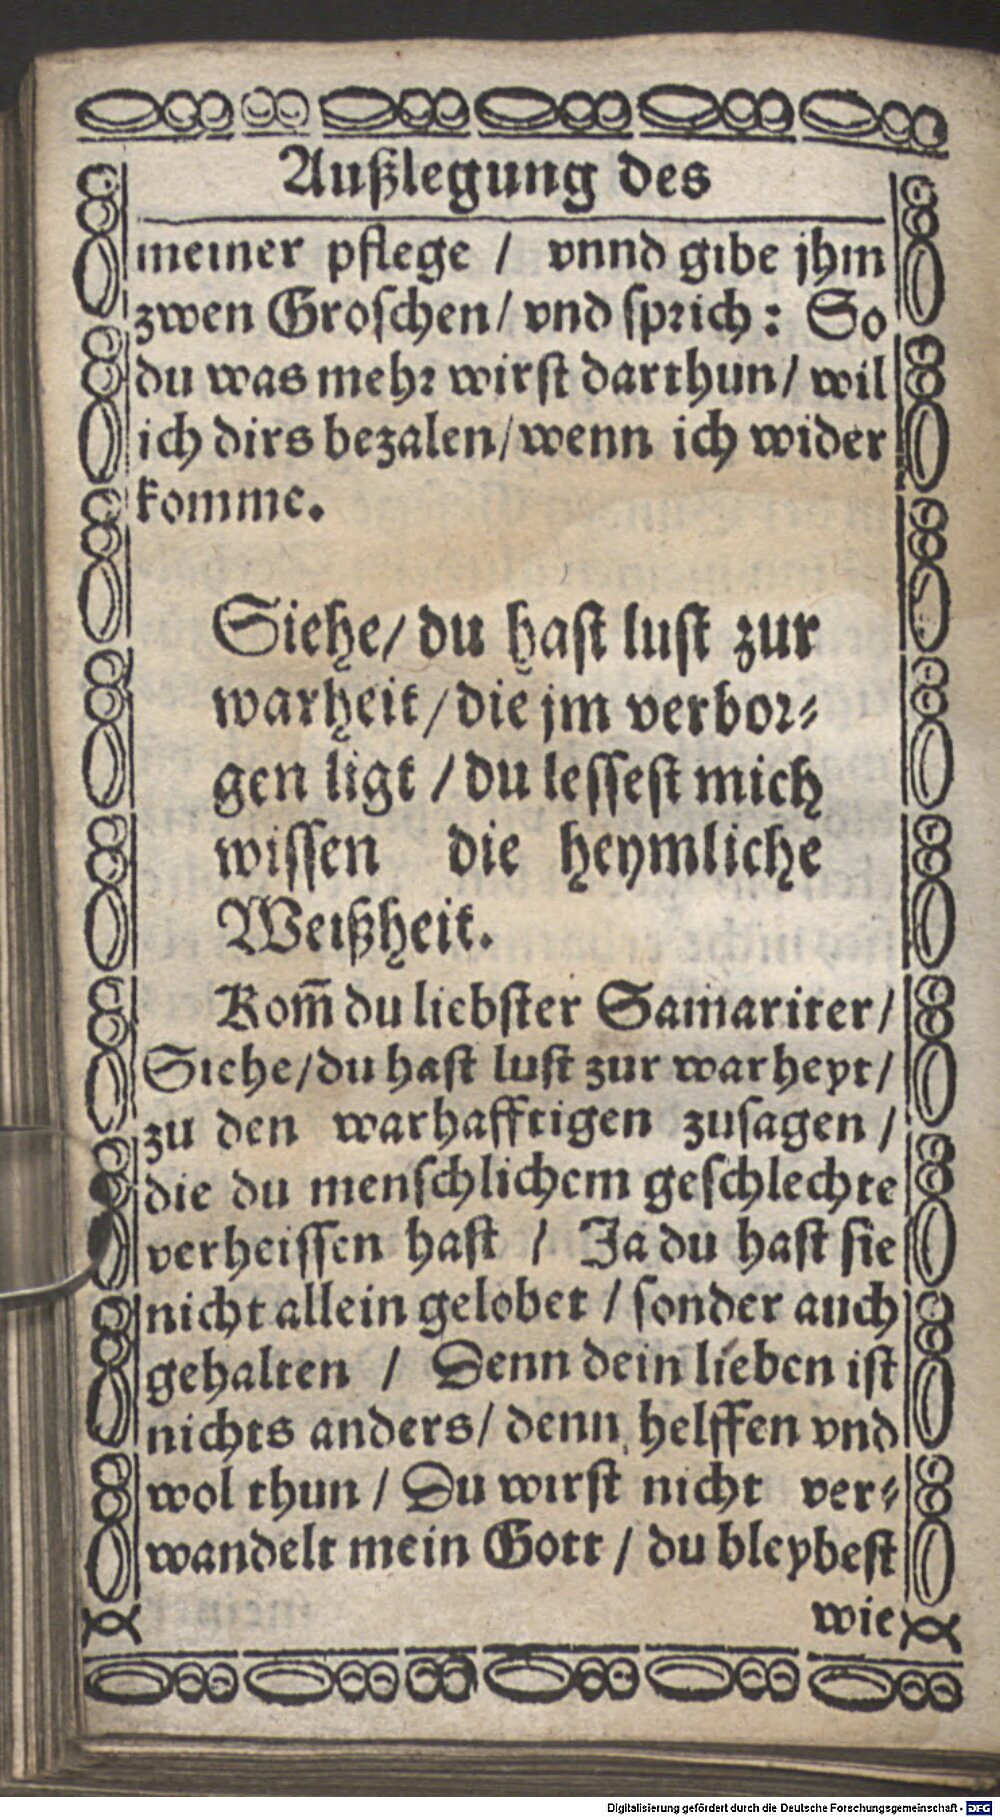 Außlegung des
meiner pflege / vnnd gibe jhm
zwen Groschen / vnd sprich: So
du was mehr wirst darthun / wil
ich dirs bezalen / wenn ich wider
komme.
Siehe / du hast lust zur
warheit / die jm verbor⸗
gen ligt / du lessest mich
wissen die heymliche
Weißheit.
Kom̃ du liebster Samariter /
Siehe / du hast lust zur warheyt /
zu den warhafftigen zusagen /
die du menschlichem geschlechte
verheissen hast / Ja du hast sie
nicht allein gelobet / sonder auch
gehalten / Denn dein lieben ist
nichts anders / denn helffen vnd
wol thun / Du wirst nicht ver⸗
wandelt mein Gott / du bleybest
wie
Digitalisierung gefördert durch die Deutsche Forschungsgemeinschaft - DFG